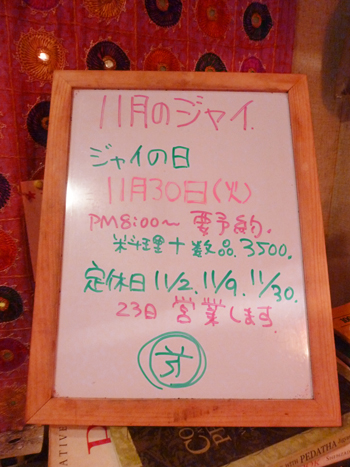 11月のジャイ.
ジャイの日
11月30日(火)
PM8:00〜 要予約.
料理十数品.3500.
定休日11/2.11/9.11/30.
23日 営業します.